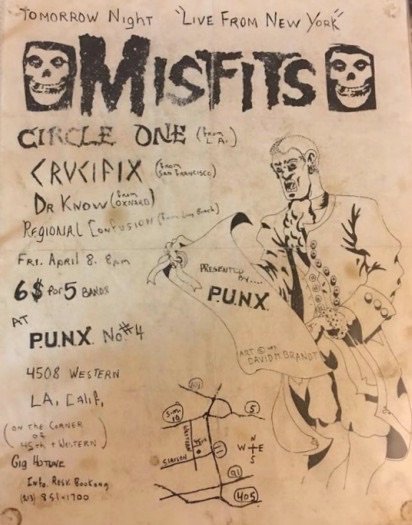 Tomorrow Night "Live From New York"
MISFITS
CIRCLE ONE (from L.A.)
CRUCIFIX (from San Francisco)
Dr Know (from Oxnard)
Regional Confusion (from Long Beach)
Fri. April 8. 8pm
6$ for 5 Bands
AT
P.U.N.X. No#4
4508 Western
L.A. Calif.
(on the corner
of
45th & Western)
Gig Hotline
Info. Resv. Booking
PRESENTED
BY....
P.U.N.X.
ART ©
DAVID M. BRANDT
5
W N E
S
WESTERN
SLAUSON
11
91
405